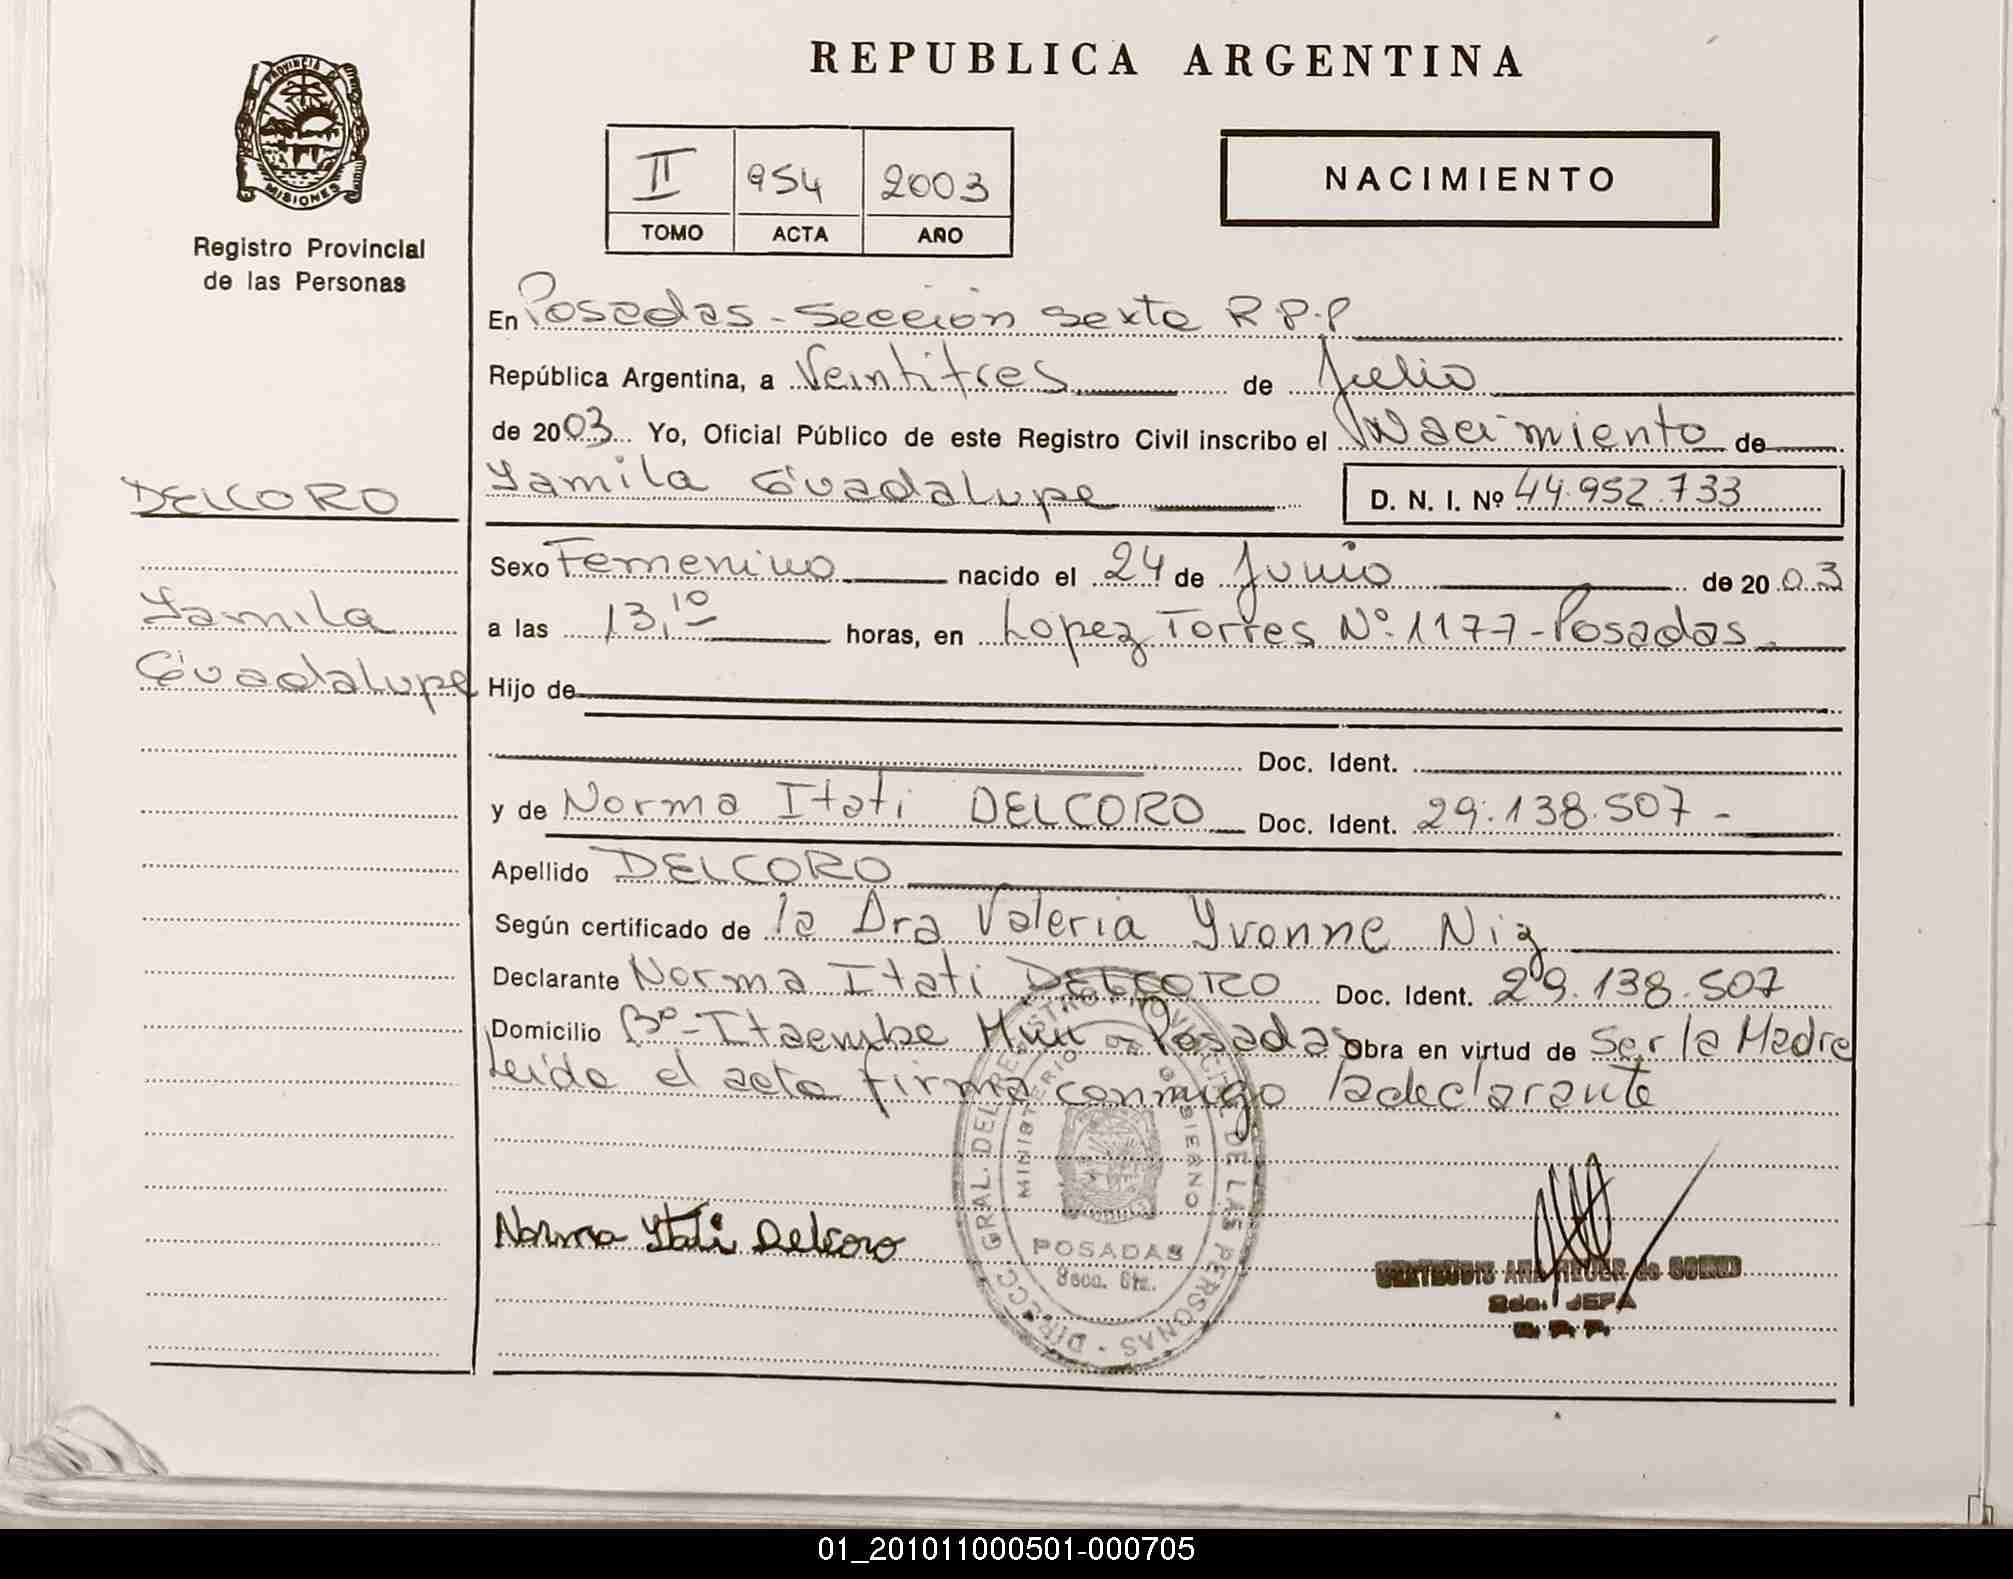 REPUBLICA ARGENTINA
PROVINCIA DE
MISIONES
Registro Provincial
de las Personas
II 954 2003
TOMO ACTA AÑO
NACIMIENTO
En Posadas - Sección Sexta R.P.P
República Argentina, a Veintitres de Julio
de 2003 Yo, Oficial Público de este Registro Civil inscribo el Nacimiento de
DELCORO
Yamila Guadalupe D. N. I. Nº 44.952.733
Sexo Femenino nacido el 24 de Junio de 2003
Yamila
Guadalupe
a las 13,10 horas, en Lopez Torres Nº 1177 - Posadas
Hijo de
Doc. Ident.
y de Norma Itati DELCORO Doc. Ident. 29.138.507 -
Apellido DELCORO
Según certificado de la Dra Valeria Yvonne Niz
Declarante Norma Itati DELCORO Doc. Ident. 29.138.507
Domicilio Bº - Itaembe Mini - Posadas Obra en virtud de Ser la Madre
Leida el acta firma conmigo la declarante
DIRECC. GRAL. DEL REGISTRO PROVINCIAL DE LAS PERSONAS
MINISTERIO DE GOBIERNO
POSADAS
Secc. 6ta.
Norma Ytati Delcoro
JEFA
R. P. P.
01_201011000501-000705